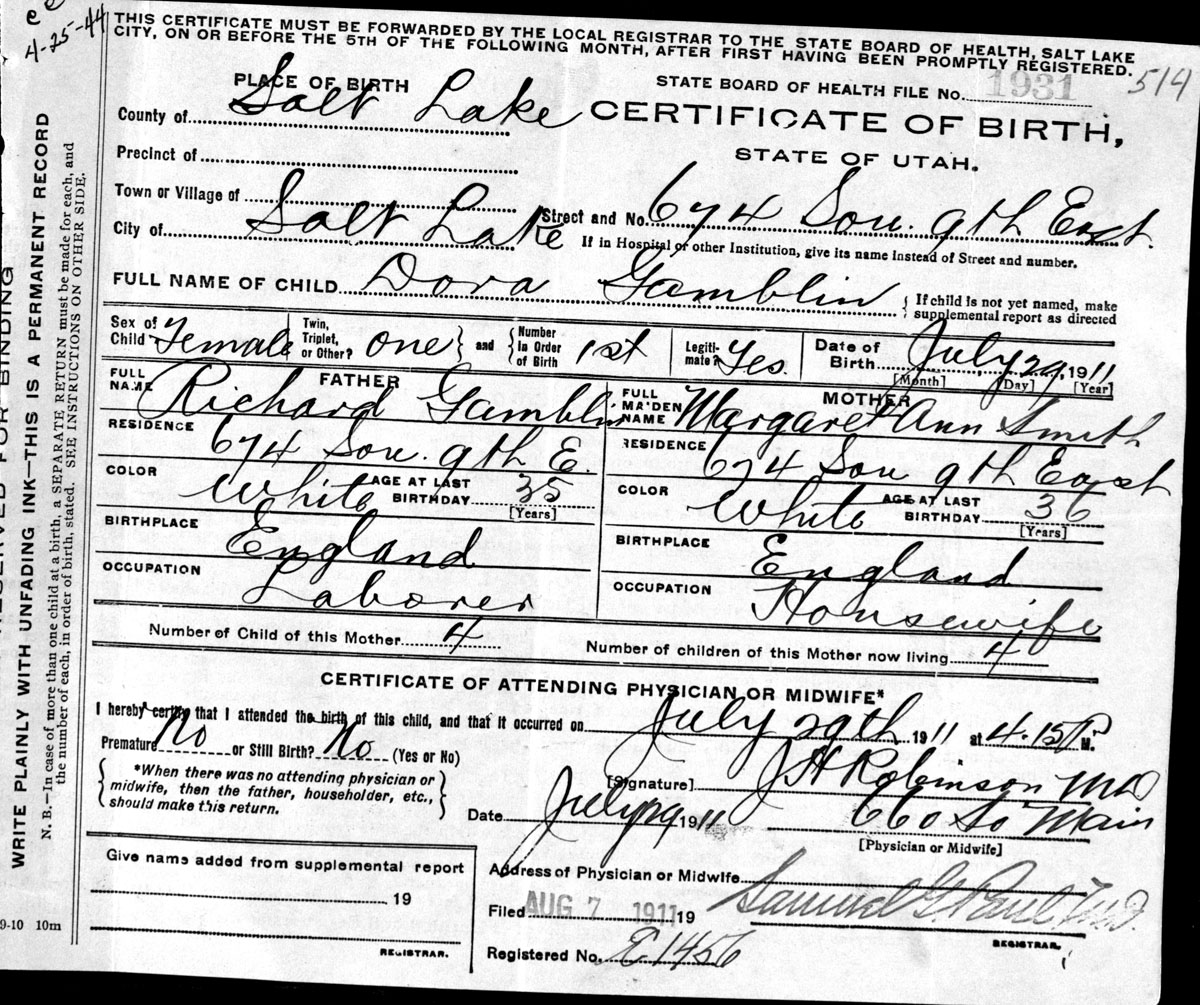 4-25-44
THIS CERTIFICATE MUST BE FORWARDED BY THE LOCAL REGISTRAR TO THE STATE BOARD OF HEALTH, SALT LAKE
CITY, ON OR BEFORE THE 5TH OF THE FOLLOWING MONTH, AFTER FIRST HAVING BEEN PROMPTLY REGISTERED.
514
PLACE OF BIRTH
STATE BOARD OF HEALTH FILE No. 1931
County of Salt Lake
CERTIFICATE OF BIRTH,
STATE OF UTAH.
Precinct of
Town or Village of
Street and No. 674 Sou. 9th East.
City of Salt Lake
If in Hospital or other Institution, give its name instead of Street and number.
FULL NAME OF CHILD Dora Gamblin { If child is not yet named, make
supplemental report as directed
Sex of
Child Female
Twin,
Triplet,
or Other? One } and { Number
in Order
of Birth 1st
Legiti-
mate? Yes.
Date of
Birth July 29, 1911
[Month] [Day] [Year]
FATHER
FULL
NAME Richard Gamblin
RESIDENCE 674 Sou. 9th E.
COLOR White AGE AT LAST
BIRTHDAY 35
[Years]
BIRTHPLACE England
OCCUPATION Laborer
MOTHER
FULL
MAIDEN
NAME Margaret Ann Smith
RESIDENCE 674 Sou 9th East
COLOR White AGE AT LAST
BIRTHDAY 36
[Years]
BIRTHPLACE England
OCCUPATION Housewife
Number of Child of this Mother 4
Number of children of this Mother now living 4
CERTIFICATE OF ATTENDING PHYSICIAN OR MIDWIFE*
I hereby certify that I attended the birth of this child, and that it occurred on July 29th 1911 at 4.15 P M.
Premature No or Still Birth? No (Yes or No)
{ *When there was no attending physician or
midwife, then the father, householder, etc.,
should make this return. }
[Signature] J H Robinson MD
Date July 29 1911 660 So Main
[Physician or Midwife]
Give name added from supplemental report
19
REGISTRAR.
Address of Physician or Midwife
Filed AUG 7 1911 19 Samuel G. Paul M.D.
REGISTRAR.
Registered No. E1456
RESERVED FOR BINDING
WRITE PLAINLY WITH UNFADING INK—THIS IS A PERMANENT RECORD
N. B.—In case of more than one child at a birth, a SEPARATE RETURN must be made for each, and
the number of each, in order of birth, stated. SEE INSTRUCTIONS ON OTHER SIDE.
9-10 10m